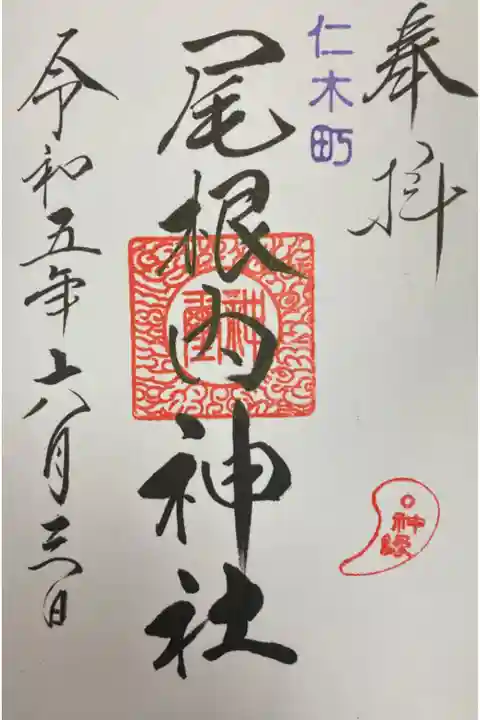 奉拝
仁木町
尾根内神社
神縁
令和五年六月三日